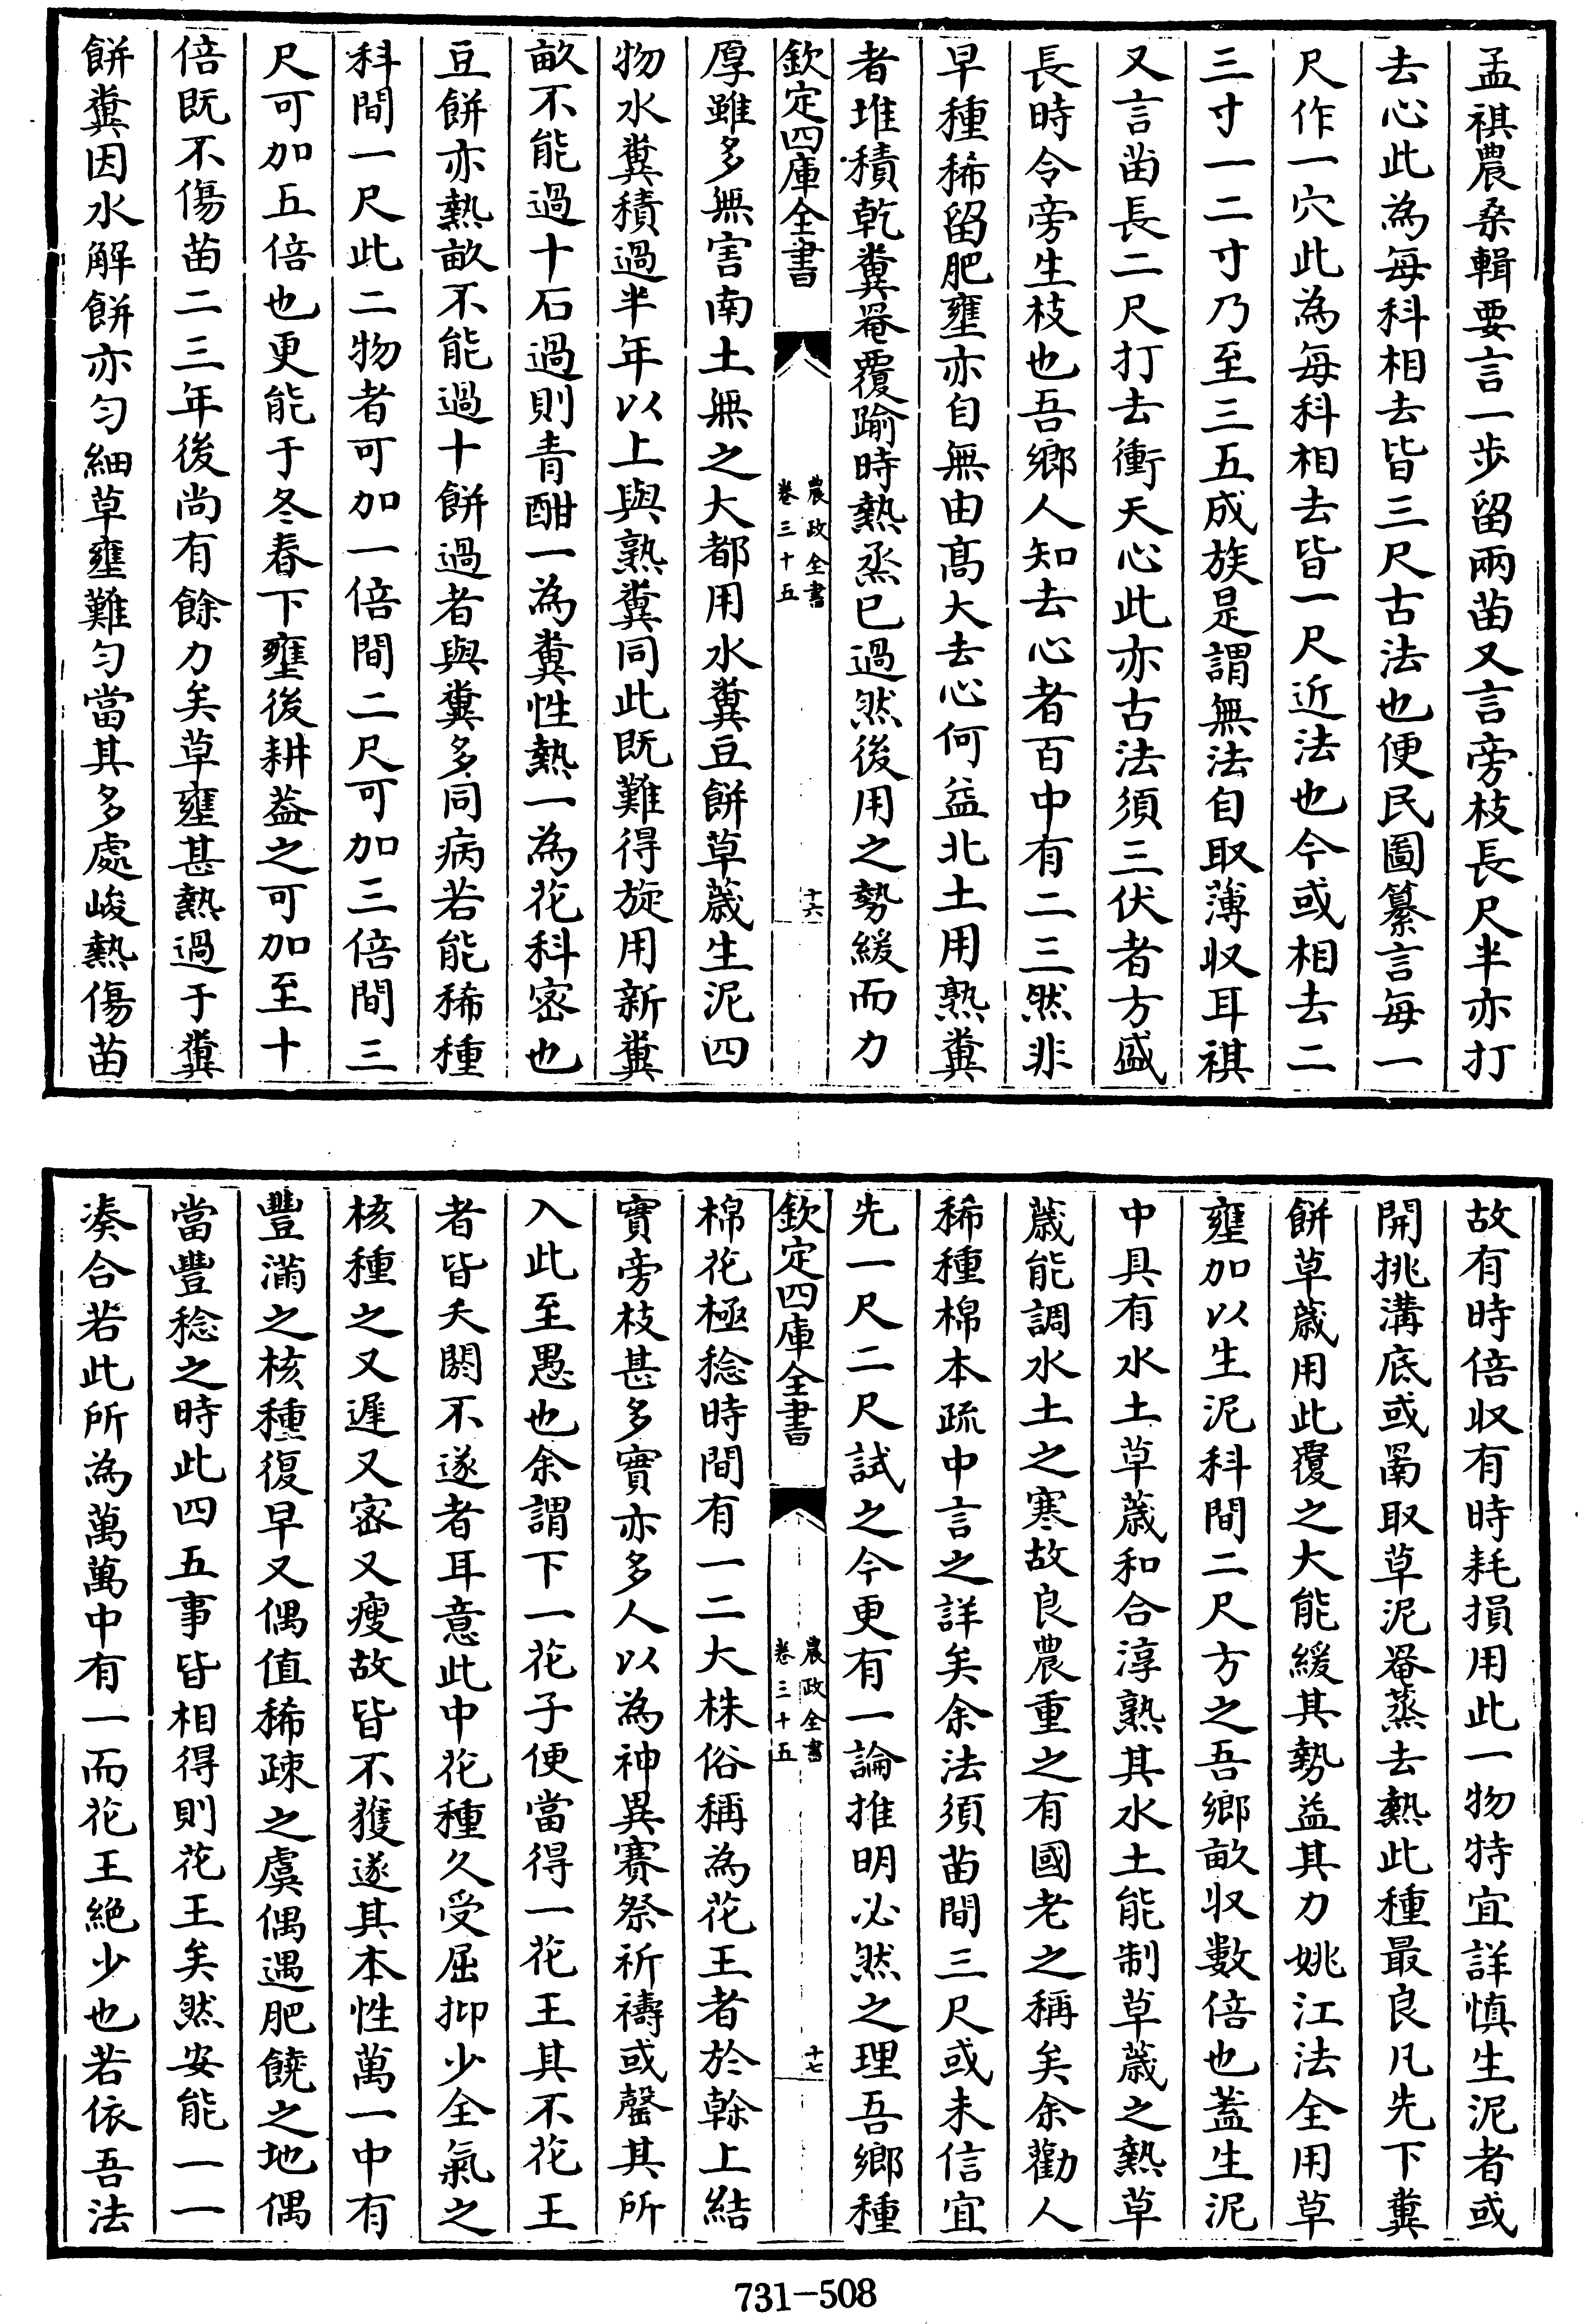 孟祺農桑輯要言一步留兩苗又言旁枝長尺半亦打
去心此為每科相去皆三尺古法也便民圖纂言每一
尺作一穴此為每科相去皆一尺近法也今或相去二
三寸一二寸乃至三五成族是謂無法自取薄收耳祺
又言苗長二尺打去衝天心此亦古法須三伏者方盛
長時令旁生枝也吾鄉人知去心者百中有二三然非
早種稀留肥壅亦自無由高大去心何益北土用熟糞
者堆積乾糞罨覆踰時熱烝已過然後用之勢緩而力
欽定四庫全書
農政全書
卷三十五
十六
厚雖多無害南土無之大都用水糞豆餅草薉生泥四
物水糞積過半年以上與熟糞同此既難得旋用新糞
畝不能過十石過則青酣一為糞性熱一為花科宻也
豆餅亦熱畝不能過十餅過者與糞多同病若能稀種
科間一尺此二物者可加一倍間二尺可加三倍間三
尺可加五倍也更能于冬春下壅後耕葢之可加至十
倍既不傷苗二三年後尚有餘力矣草壅甚熱過于糞
餅糞因水解餅亦勻細草壅難勻當其多處峻熱傷苗
故有時倍收有時耗損用此一物特宜詳慎生泥者或
開挑溝底或罱取草泥罨蒸去熱此種最良凡先下糞
餅草薉用此覆之大能緩其勢益其力姚江法全用草
壅加以生泥科間二尺方之吾鄉畝收數倍也蓋生泥
中具有水土草薉和合淳熟其水土能制草薉之熱草
薉能調水土之寒故良農重之有國老之稱矣余勸人
稀種棉本疏中言之詳矣余法須苗間三尺或未信宜
先一尺二尺試之今更有一論推明必然之理吾鄉種
欽定四庫全書
農政全書
卷三十五
十七
棉花極稔時間有一二大株俗稱為花王者於榦上結
實旁枝甚多實亦多人以為神異賽祭祈禱或罄其所
入此至愚也余謂下一花子便當得一花王其不花王
者皆夭閼不遂者耳意此中花種久受屈抑少全氣之
核種之又遲又宻又瘦故皆不獲遂其本性萬一中有
豐滿之核種復早又偶值稀疎之處偶遇肥饒之地偶
當豐稔之時此四五事皆相得則花王矣然安能一一
湊合若此所為萬萬中有一而花王絕少也若依吾法
731-508